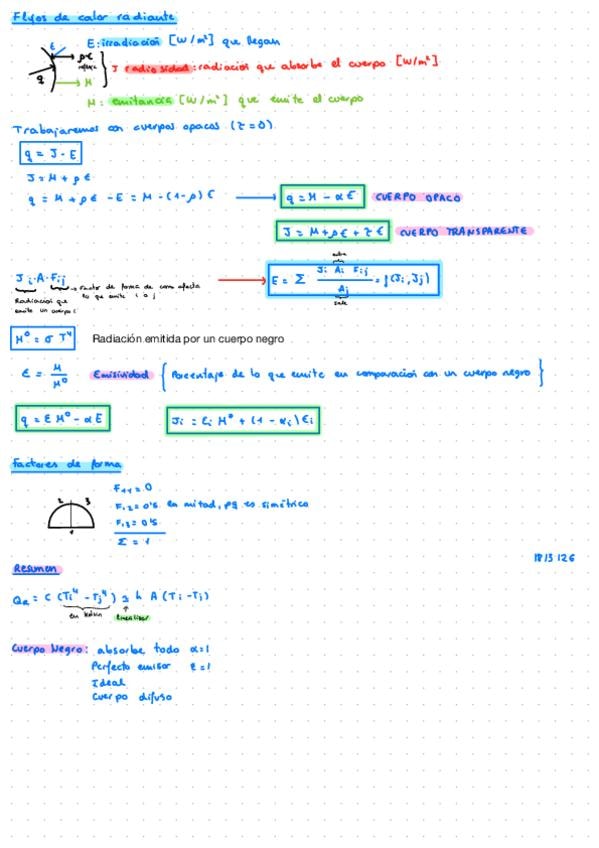 Flujos de calor radiante
E: irradiación [W/m²] que llegan
E ρE J radiosidad: radiación que absorbe el cuerpo [W/m²]
q M
M: emitancia [W/m²] que emite el cuerpo
Trabajaremos con cuerpos opacos (τ=0)
q = J - E
J = M + ρE
q = M + ρE - E = M - (1-ρ)E → q = M - αE CUERPO OPACO
J = M + ρE + τE CUERPO TRANSPARENTE
Ji·A·Fij → Factor de forma de como afecta lo que emite i a j
Radiación que emite un cuerpo i
E = Σ Ji Ai Fij / Aj = f(Ji, Jj)
M⁰ = σ T⁴ Radiación emitida por un cuerpo negro
ε = M / M⁰ Emisividad {Porcentaje de lo que emite en comparación con un cuerpo negro}
q = εM⁰ - αE Ji = εi M⁰ + (1 - αi) Ei
Factores de forma
2 3
1
F11 = 0
F12 = 0'5 en mitad, pq es simétrico
F13 = 0'5
Σ = 1
18/3/26
Resumen
QR = C (Ti⁴ - Tj⁴) ≃ h A (Ti - Tj)
en kelvin linealizar
Cuerpo Negro: absorbe todo α=1
Perfecto emisor ε=1
Ideal
Cuerpo difuso